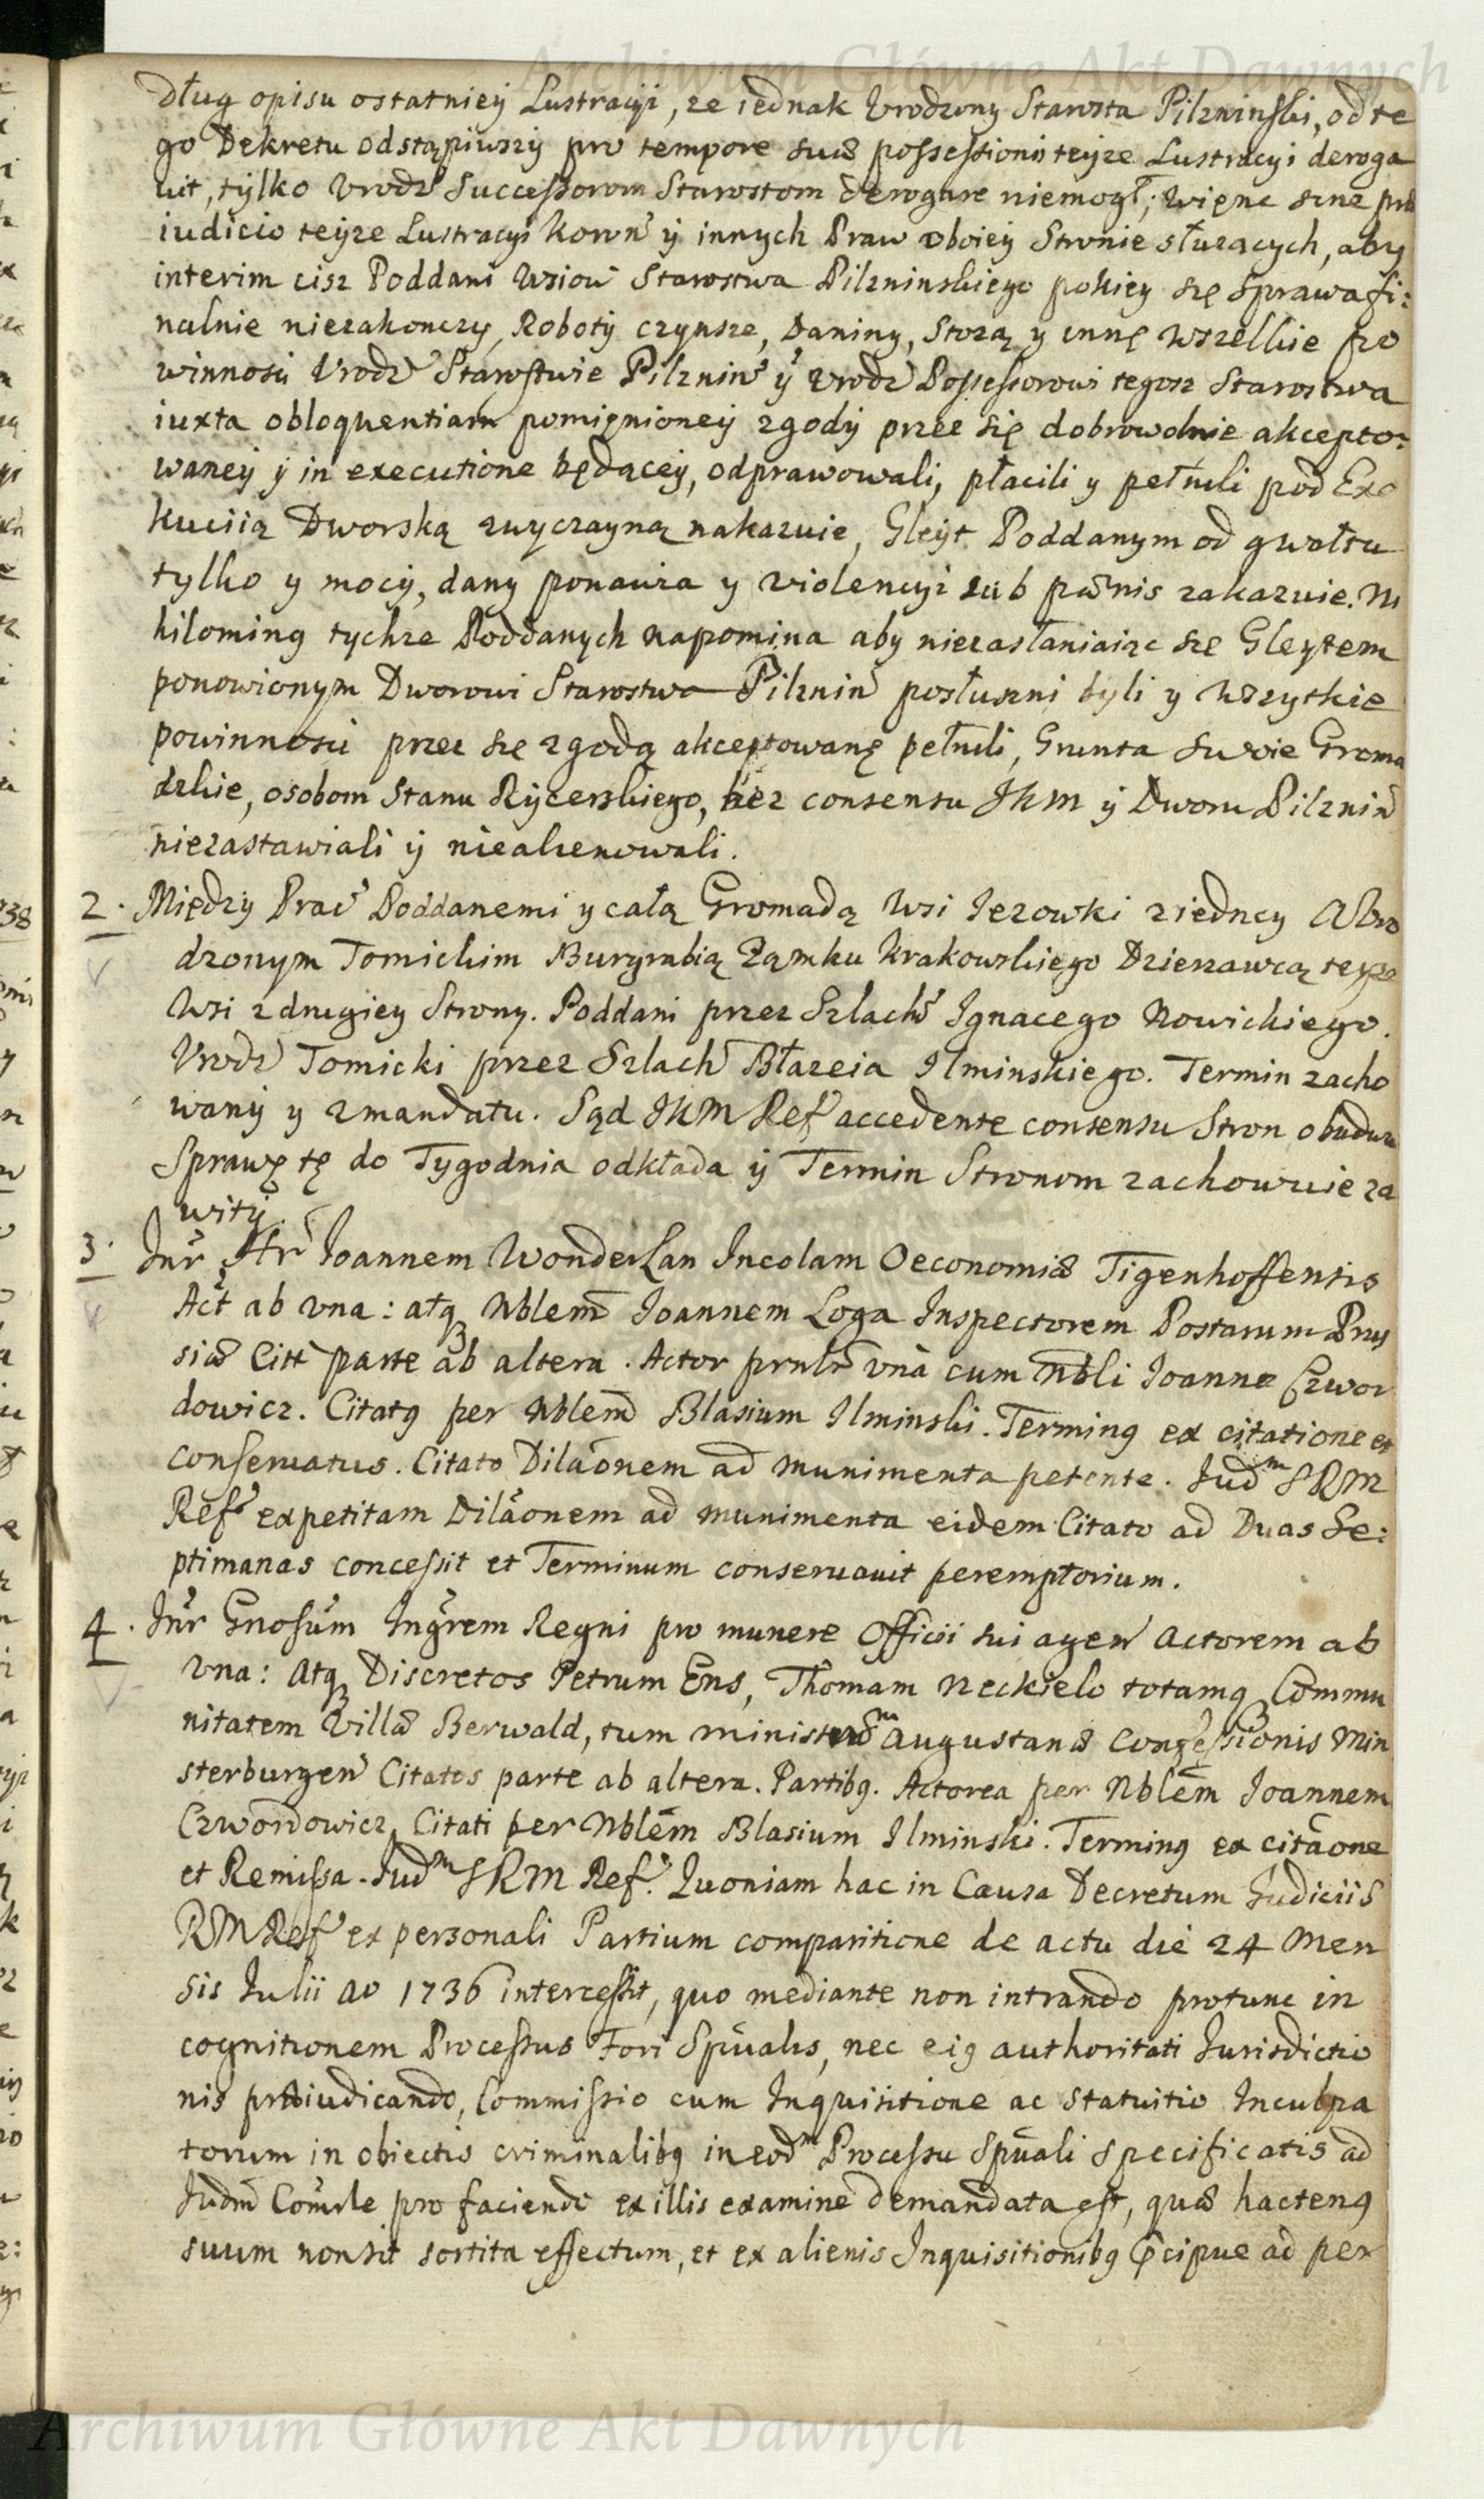 Archiwum Główne Akt Dawnych
dług opisu ostatniey Lustracyi, ze iednak Vrodzony Starosta Pilzninski, od te
go Dekretu odstąpiwszy pro tempore suæ possessionis teyze Lustracyi deroga
uit, tylko Vrodz Successorom Starostom derogare niemogł; więnc sine præ
iudicio teyze Lustracyi Koron y innych Praw oboiey Stronie słuzących, aby
interim cisz Poddani wsiow Starostwa Pilzninskiego pokiey się Sprawa fi:
nalnie niezakonczy, Roboty czynsze, Daniny, Strozą y innę wszelkie po
winnosci Vrodz Starostwie Pilznin y Vrodz Possessorowi tegosz Starostwa
iuxta obloquentiam pomięnioney zgody przez się dobrowolnie akcepto:
waney y in executione będącey, odprawowali, płacili y pełnili pod Exe
kuciią Dworską zwyczayną nakazuie, Gleyt Poddanym od gwałtu
tylko y mocy, dany ponawia y violencyi sub pœnis zakazuie. Ni
hilominq tychze Poddanych napomina aby niezasłaniaiąc się Gleytem
ponowionym Dworowi Starostwa Pilznin posłuszni byli y wszytkie
powinnosci przez się zgodą akceptowanę pełnili, Grunta swoie Groma
dzkie, osobom Stanu Rycerskiego, bez consensu JKM y Dworu Pilznin
niezastawiali y niealienowali.
2. Między Prac Poddanemi y całą Gromadą Wsi Jezowki ziedney A Vro
dzonym Tomickim Burgrabią Zamku Krakowskiego Dzierzawcą teyze
Wsi zdrugiey Strony. Poddani przez Szlach Ignacego Nowickiego.
Vrodz Tomicki przez Szlach Błazeia Ilminskiego. Termin zacho
wany y zmandatu. Sąd JKM Ref accedente consensu Stron obudwu
Sprawę tę do Tygodnia odkłada y Termin Stronom zachowuie za
wity.
3. Inr Htr Joannem Wonderlan Incolam Oeconomiæ Tigenhoffensis
Act ab vna: atq Nblem Joannem Loga Inspectorem Postarum Prus
siæ Citt parte ab altera. Actor prnlr vna cum Nbli Joanne Czwor
dowicz. Citatq per Nblem Blasium Ilminski. Terminq ex citatione et
conseruatus. Citato Dilaonem ad munimenta petente. Jud^m SRM
Ref expetitam Dilaonem ad munimenta eidem Citato ad Duas Se:
ptimanas concessit et Terminum conseruauit peremptorium.
4. Inr Gnosum Ingrem Regni pro munere Officii sui agen Actorem ab
vna: Atq Discretos Petrum Ens, Thomam Neckielo totamq Commu
nitatem Villæ Berwald, tum ministrum Augustanæ Confessionis Min
sterburgen Citatos parte ab altera. Partibq. Actorea per Nblem Joannem
Czwordowicz, Citati per Nblem Blasium Ilminski. Terminq ex citaone
et Remissa. Jud^m SRM Ref. Quoniam hac in Causa Decretum Judiciis
RM Ref ex personali Partium comparitione de actu die 24 Men
sis Julii Ao 1736 intercessit, quo mediante non intrando protunc in
cognitionem Processus Fori Spualis, nec eiq authoritati Jurisdictio
nis præiudicando, Commissio cum Inquisitione ac Statuitio Inculpa
torum in obiectis criminalibq in eod^m Processu Spuali specificatis ad
Judm Comrle pro faciendo ex illis examine demandata est, quæ hactenq
suum non sit sortita effectum, et ex alienis Inquisitionibq Pcipue ad per
Archiwum Główne Akt Dawnych